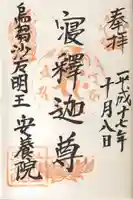 奉拝
平成十七年
十月八日
寝釋迦尊
烏芻沙广明王
安養院